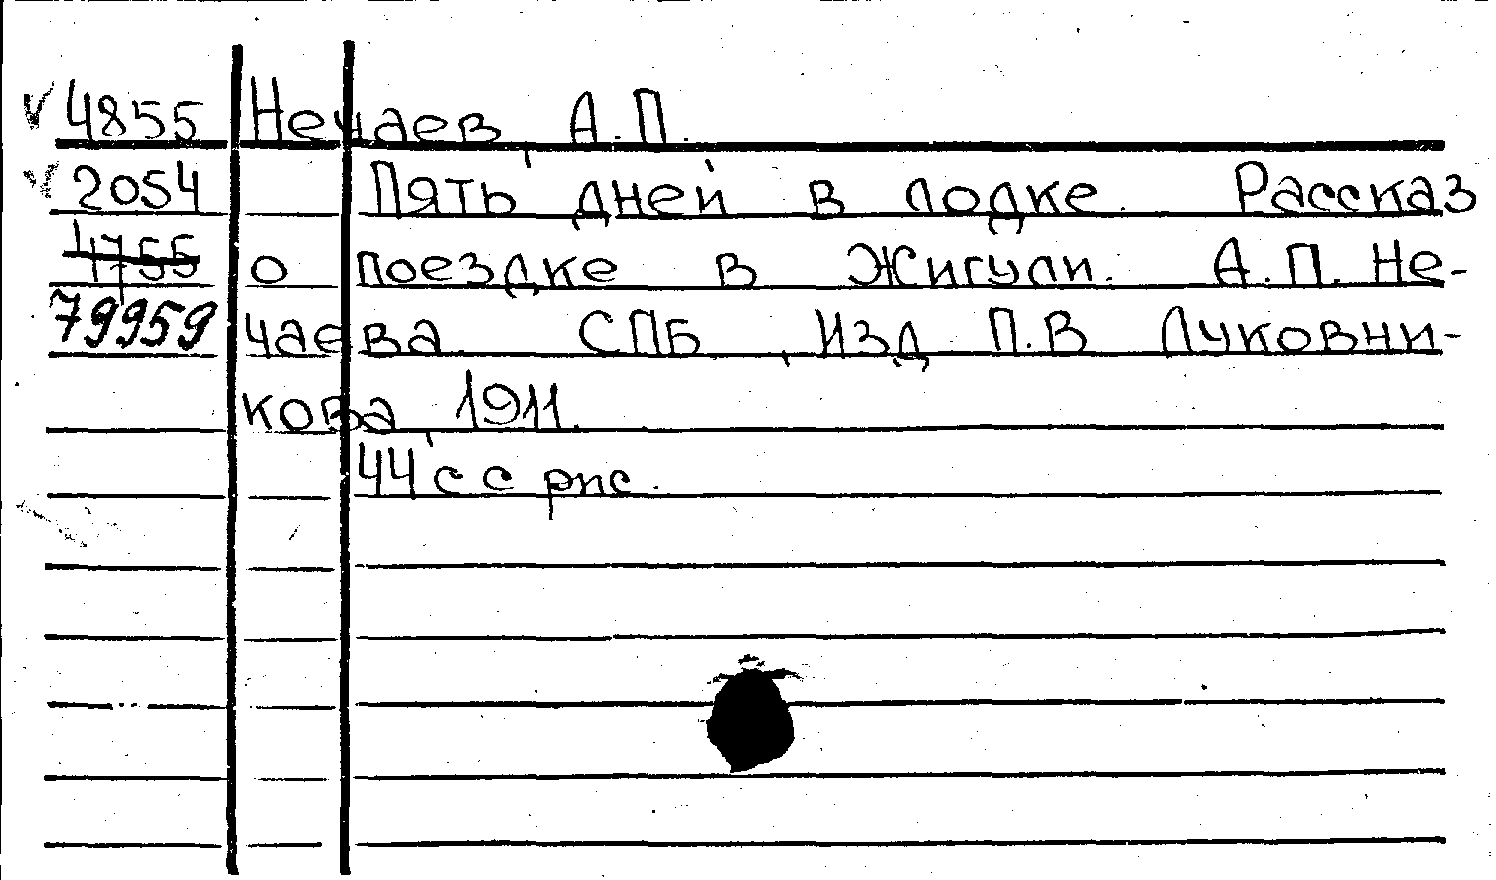 4855 Нечаев, А.П.
2054 Пять дней в лодке. Рассказ
4755 о поездке в Жигули. А.П. Не-
79959 чаева СПБ, Изд П.В Луковни-
кова, 1911.
44 с с рис.